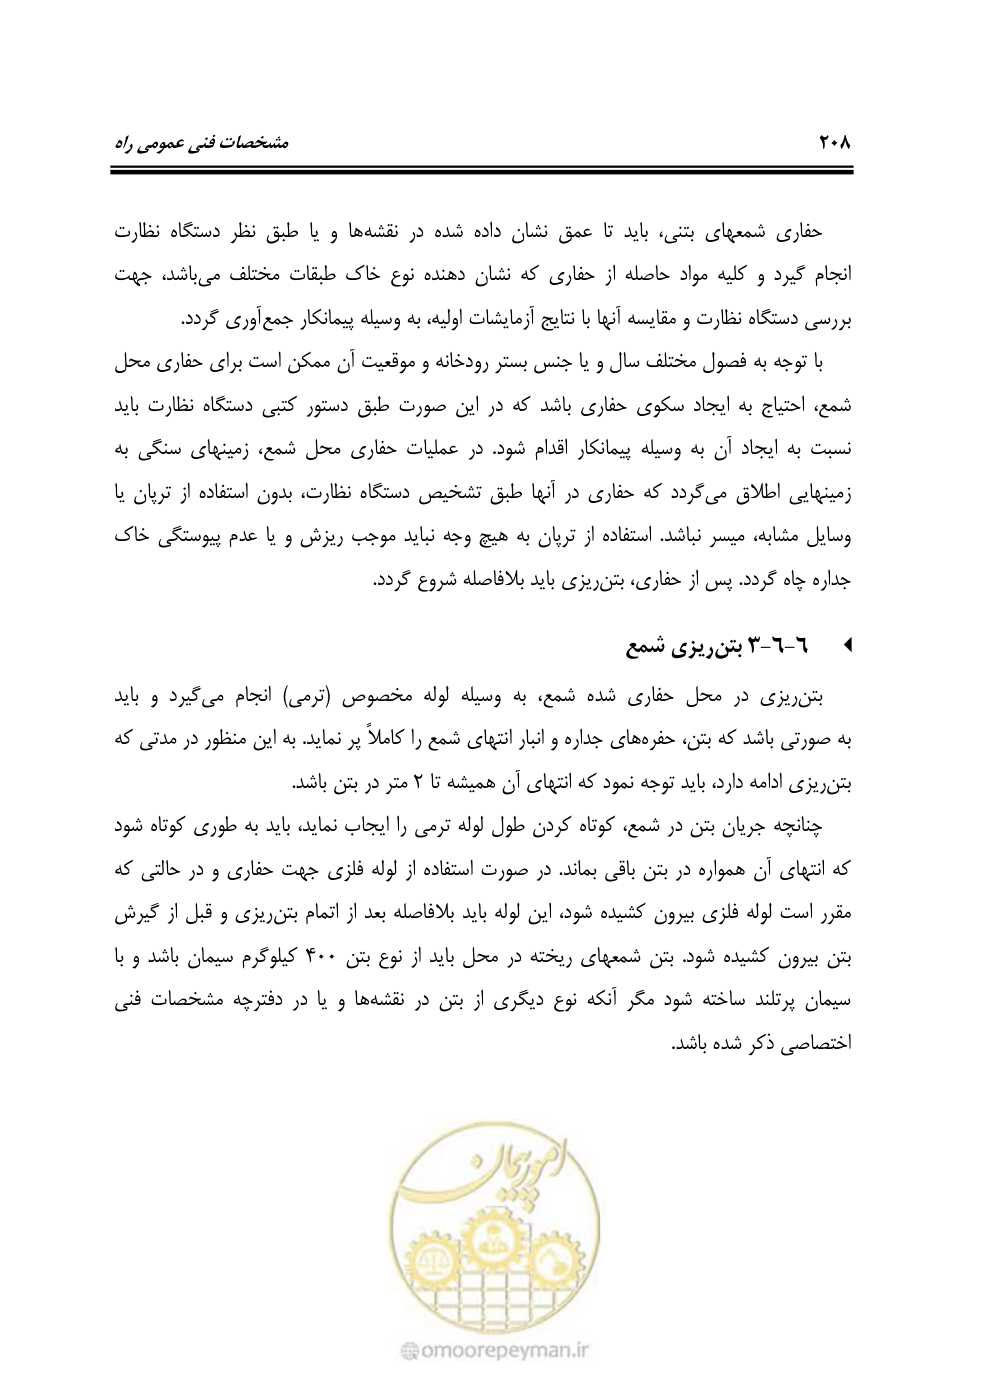 ۲۰۸ مشخصات فنی عمومی راه
حفاری شمعهای بتنی، باید تا عمق نشان داده شده در نقشه‌ها و یا طبق نظر دستگاه نظارت
انجام گیرد و کلیه مواد حاصله از حفاری که نشان دهنده نوع خاک طبقات مختلف می‌باشد، جهت
بررسی دستگاه نظارت و مقایسه آنها با نتایج آزمایشات اولیه، به وسیله پیمانکار جمع‌آوری گردد.
با توجه به فصول مختلف سال و یا جنس بستر رودخانه و موقعیت آن ممکن است برای حفاری محل
شمع، احتیاج به ایجاد سکوی حفاری باشد که در این صورت طبق دستور کتبی دستگاه نظارت باید
نسبت به ایجاد آن به وسیله پیمانکار اقدام شود. در عملیات حفاری محل شمع، زمینهای سنگی به
زمینهایی اطلاق می‌گردد که حفاری در آنها طبق تشخیص دستگاه نظارت، بدون استفاده از ترپان یا
وسایل مشابه، میسر نباشد. استفاده از ترپان به هیچ وجه نباید موجب ریزش و یا عدم پیوستگی خاک
جداره چاه گردد. پس از حفاری، بتن‌ریزی باید بلافاصله شروع گردد.
۶-۶-۳ بتن‌ریزی شمع
بتن‌ریزی در محل حفاری شده شمع، به وسیله لوله مخصوص (ترمی) انجام می‌گیرد و باید
به صورتی باشد که بتن، حفره‌های جداره و انبار انتهای شمع را کاملاً پر نماید. به این منظور در مدتی که
بتن‌ریزی ادامه دارد، باید توجه نمود که انتهای آن همیشه تا ۲ متر در بتن باشد.
چنانچه جریان بتن در شمع، کوتاه کردن طول لوله ترمی را ایجاب نماید، باید به طوری کوتاه شود
که انتهای آن همواره در بتن باقی بماند. در صورت استفاده از لوله فلزی جهت حفاری و در حالتی که
مقرر است لوله فلزی بیرون کشیده شود، این لوله باید بلافاصله بعد از اتمام بتن‌ریزی و قبل از گیرش
بتن بیرون کشیده شود. بتن شمعهای ریخته در محل باید از نوع بتن ۴۰۰ کیلوگرم سیمان باشد و با
سیمان پرتلند ساخته شود مگر آنکه نوع دیگری از بتن در نقشه‌ها و یا در دفترچه مشخصات فنی
اختصاصی ذکر شده باشد.
امور پیمان
omoorepeyman.ir